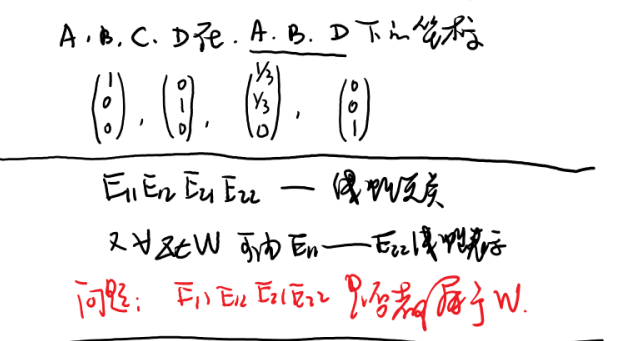 A.B.C.D在.A.B.D下的坐标
(1 0 0), (0 1 0), (1/3 1/3 0), (0 0 1)
E₁₁ E₁₂ E₂₁ E₂₂ — 线性无关
又∀α∈W 可由E₁₁——E₂₂线性表示
问题: E₁₁ E₁₂ E₂₁ E₂₂ 是否都属于W.